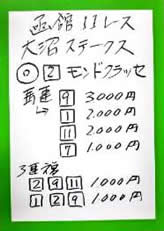 函館11レース
大沼ステークス
◎ 2 モンドクラッセ
馬連 9 3000円
→ 1 2.000円
11 2.000円
7 1.000円
3連複
2 9 11 1.000円
1 2 9 1.000円